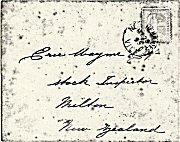 Eric Wayne
Stock Inspector
Milton
New Zealand